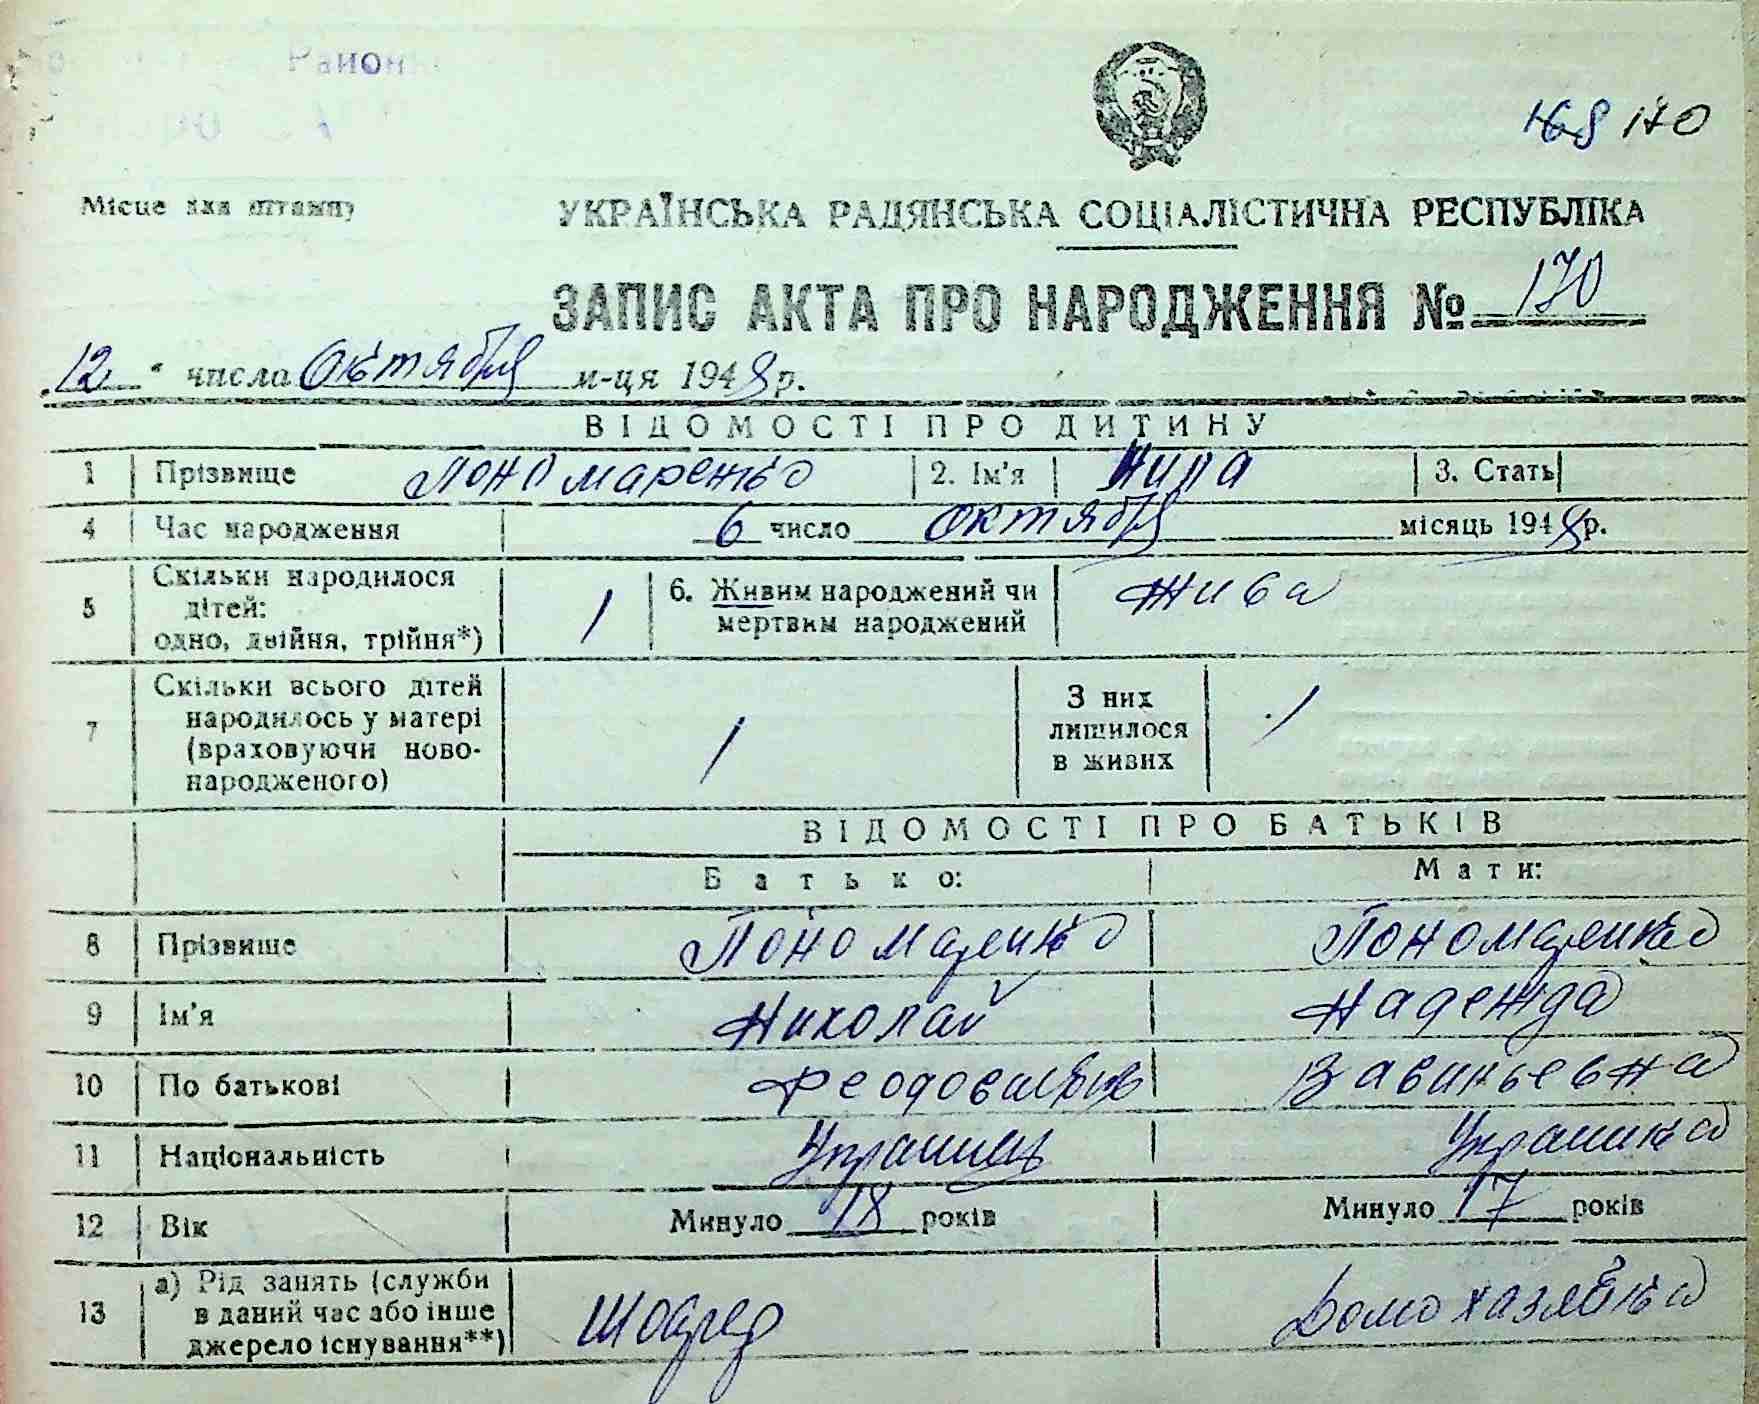 Район
168 170
Місце для штампу
УКРАЇНСЬКА РАДЯНСЬКА СОЦІАЛІСТИЧНА РЕСПУБЛІКА
ЗАПИС АКТА ПРО НАРОДЖЕННЯ № 170
„12" числа Октября м-ця 1948 р.
ВІДОМОСТІ ПРО ДИТИНУ
1 Прізвище Пономаренко 2. Ім'я Нина 3. Стать
4 Час народження 6 число Октября місяць 1948 р.
5 Скільки народилося дітей: одно, двійня, трійня*) 1 6. Живим народжений чи мертвим народжений Жива
7 Скільки всього дітей народилось у матері (враховуючи новонародженого) 1 З них лишилося в живих 1
ВІДОМОСТІ ПРО БАТЬКІВ
Батько: Мати:
8 Прізвище Пономаренко Пономаренко
9 Ім'я Николай Надежда
10 По батькові
11 Національність Украинець Украинка
12 Вік Минуло 18 років Минуло 17 років
13 а) Рід занять (служби в даний час або інше джерело існування**) Шофер Домохазяйка